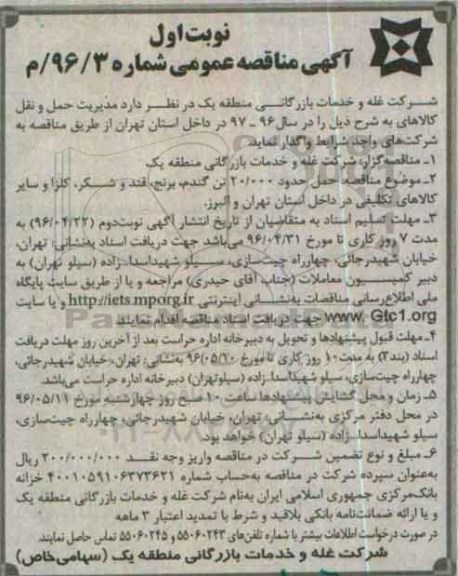 نوبت اول
آگهی مناقصه عمومی شماره ۹۶/۳/م
شرکت غله و خدمات بازرگانی منطقه یک در نظر دارد مدیریت حمل و نقل
کالاهای به شرح ذیل را در سال ۹۶ ـ ۹۷ در داخل استان تهران از طریق مناقصه به
شرکت‌های واجد شرایط واگذار نماید.
۱ـ مناقصه‌گزار: شرکت غله و خدمات بازرگانی منطقه یک
۲ـ موضوع مناقصه: حمل حدود ۲۰/۰۰۰ تن گندم، برنج، قند و شکر، کلزا و سایر
کالاهای تکلیفی در داخل استان تهران و البرز.
۳ـ مهلت تسلیم اسناد به متقاضیان از تاریخ انتشار آگهی نوبت‌دوم (۹۶/۰۴/۲۲) به
مدت ۷ روز کاری تا مورخ ۹۶/۰۴/۳۱ می‌باشد جهت دریافت اسناد به‌نشانی: تهران،
خیابان شهیدرجائی، چهارراه چیت‌سازی، سیلو شهیداسدا...زاده (سیلو تهران) به
دبیر کمیسیون معاملات (جناب آقای حیدری) مراجعه و یا از طریق سایت پایگاه
ملی اطلاع‌رسانی مناقصات به‌نشانی اینترنتی http://iets.mporg.ir و یا سایت
www.Gtc1.org جهت دریافت اسناد مناقصه اقدام نمایند.
۴ـ مهلت قبول پیشنهادها و تحویل به دبیرخانه اداره حراست بعد از آخرین روز مهلت دریافت
اسناد (بند۳) به مدت ۱۰ روز کاری تا مورخ ۹۶/۰۵/۱۰ به‌نشانی: تهران، خیابان شهیدرجائی،
چهارراه چیت‌سازی، سیلو شهیداسدا...زاده (سیلو تهران) دبیرخانه اداره حراست می‌باشد.
۵ـ زمان و محل گشایش پیشنهادها ساعت ۱۰ صبح روز چهارشنبه مورخ ۹۶/۰۵/۱۱
در محل دفتر مرکزی به‌نشانی: تهران، خیابان شهیدرجائی، چهارراه چیت‌سازی،
سیلو شهیداسدا...زاده (سیلو تهران) خواهد بود.
۶ـ مبلغ و نوع تضمین شرکت در مناقصه واریز وجه نقد ۲۰۰/۰۰۰/۰۰۰ ریال
به‌عنوان سپرده شرکت در مناقصه به‌حساب شماره ۴۰۰۱۰۵۹۱۰۶۳۷۳۶۲۱ خزانه
بانک‌مرکزی جمهوری اسلامی ایران به‌نام شرکت غله و خدمات بازرگانی منطقه یک
و یا ارائه ضمانت‌نامه بانکی بلاقید و شرط با تمدید اعتبار ۳ ماهه
در صورت درخواست اطلاعات بیشتر با شماره تلفن‌های ۵۵۰۶۰۲۴۳ و ۵۵۰۶۰۲۴۵ تماس حاصل نمایند.
شرکت غله و خدمات بازرگانی منطقه یک (سهامی‌خاص)